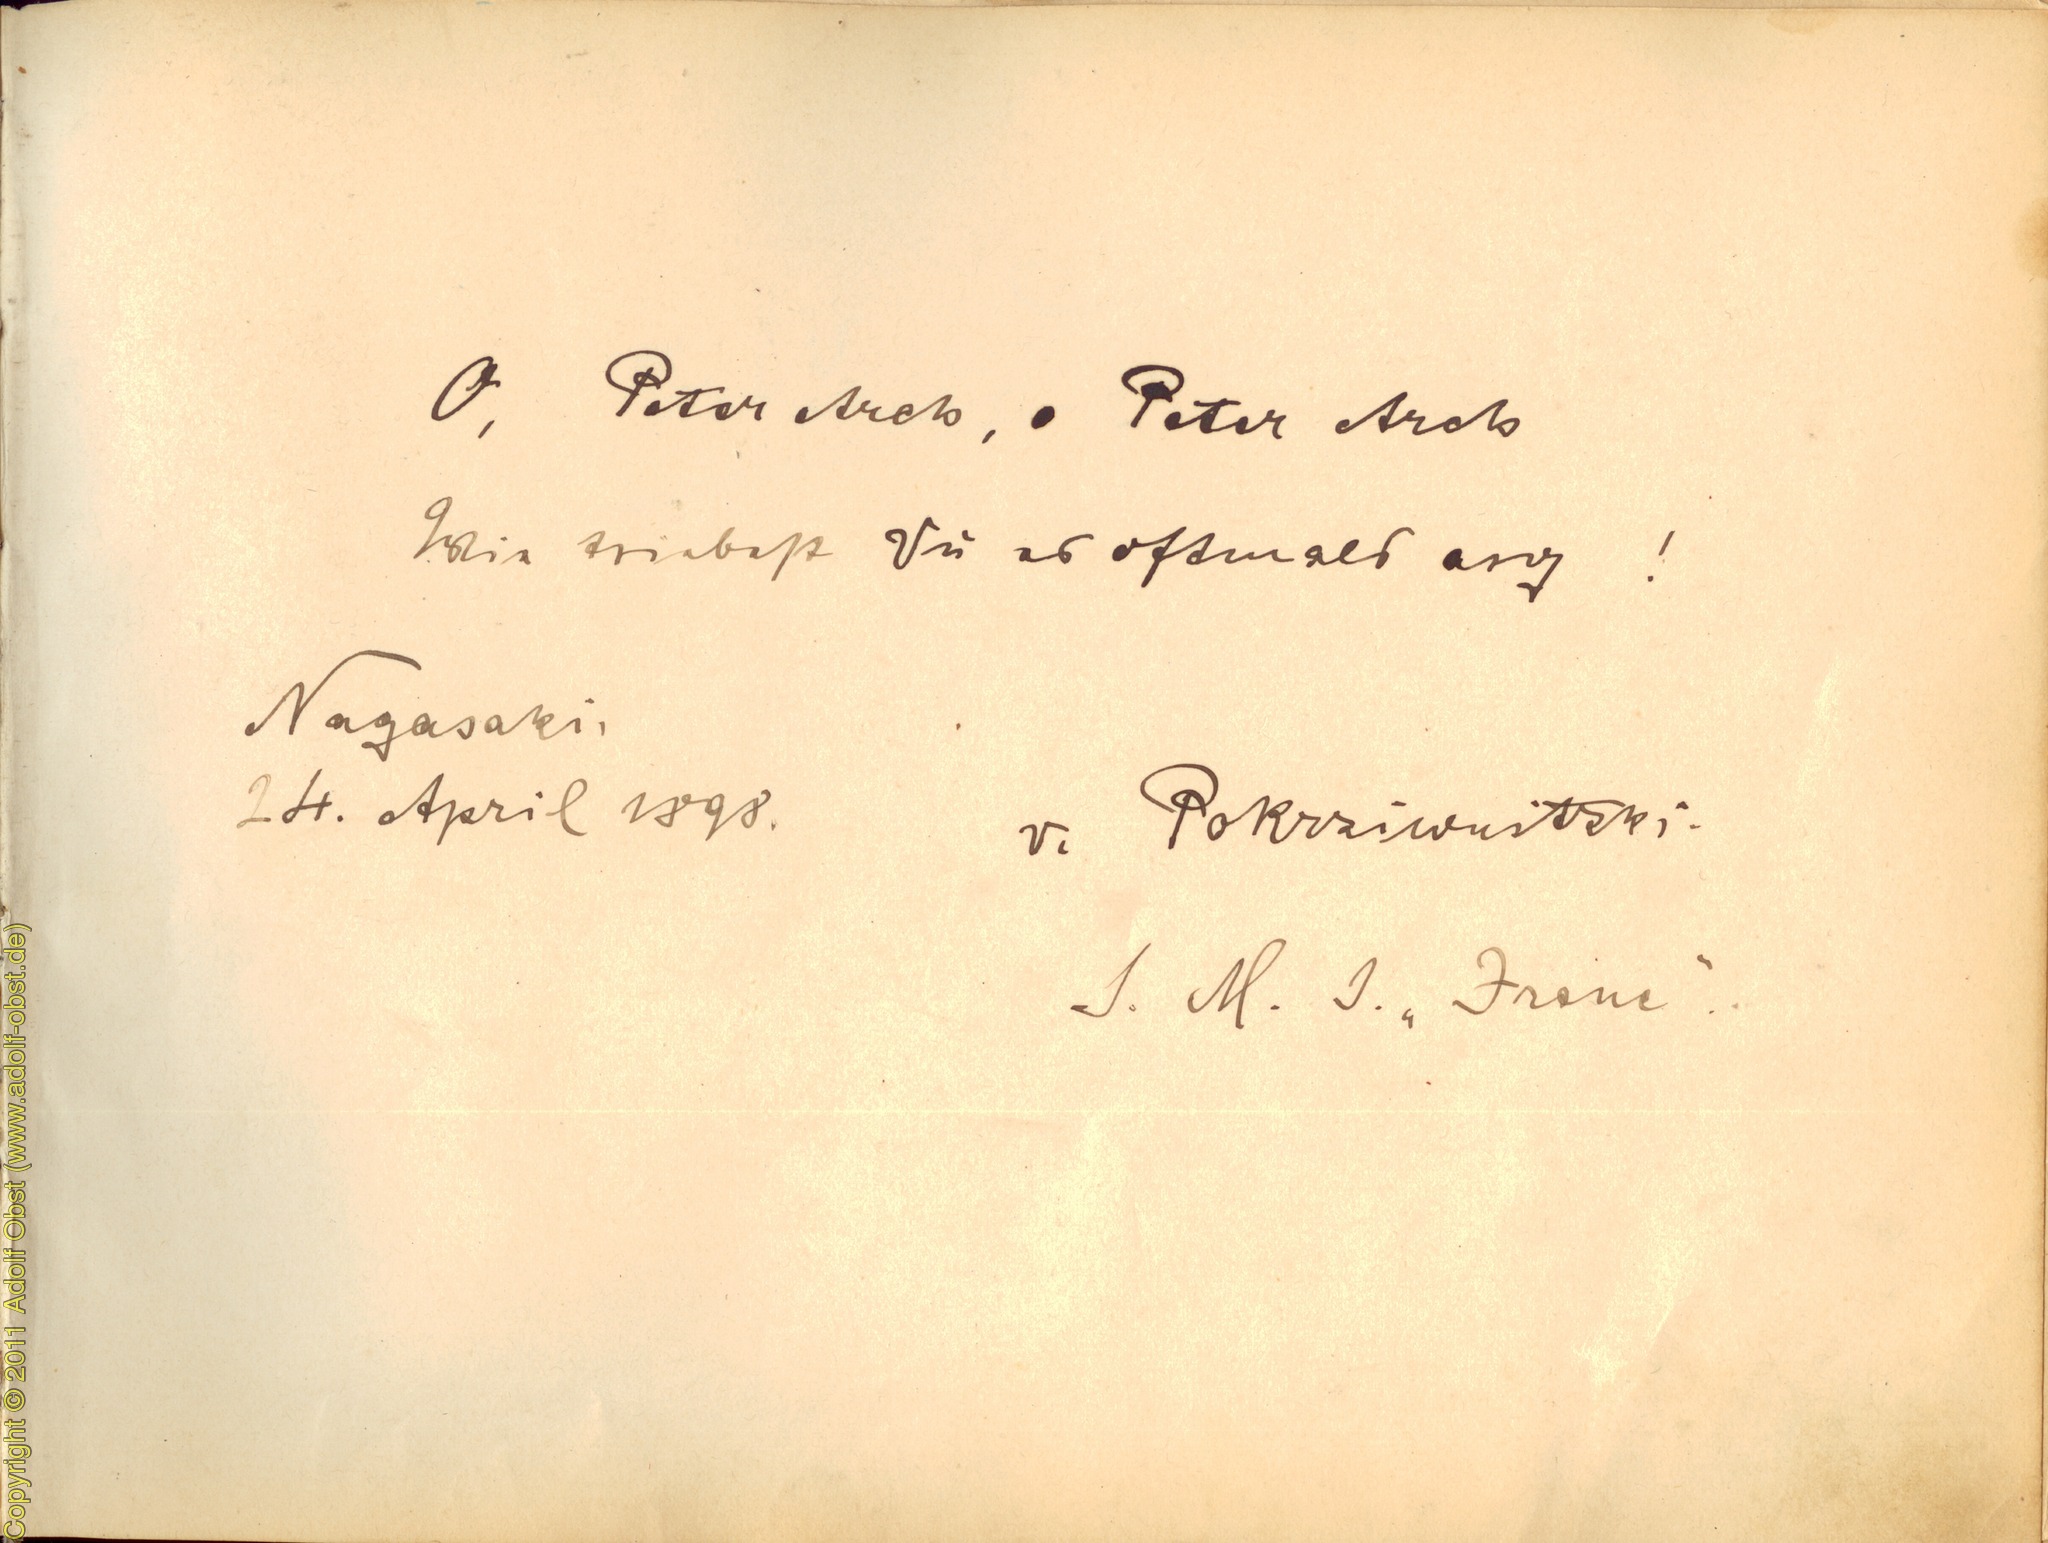 O, Peter Arcks, o Peter Arcks
Wie triebest Du es oftmals arg!
Nagasaki,
24. April 1898.
v. Pokrziwnitzki.
S. M. S. „Irene".
Copyright © 2011 Adolf Obst (www.adolf-obst.de)